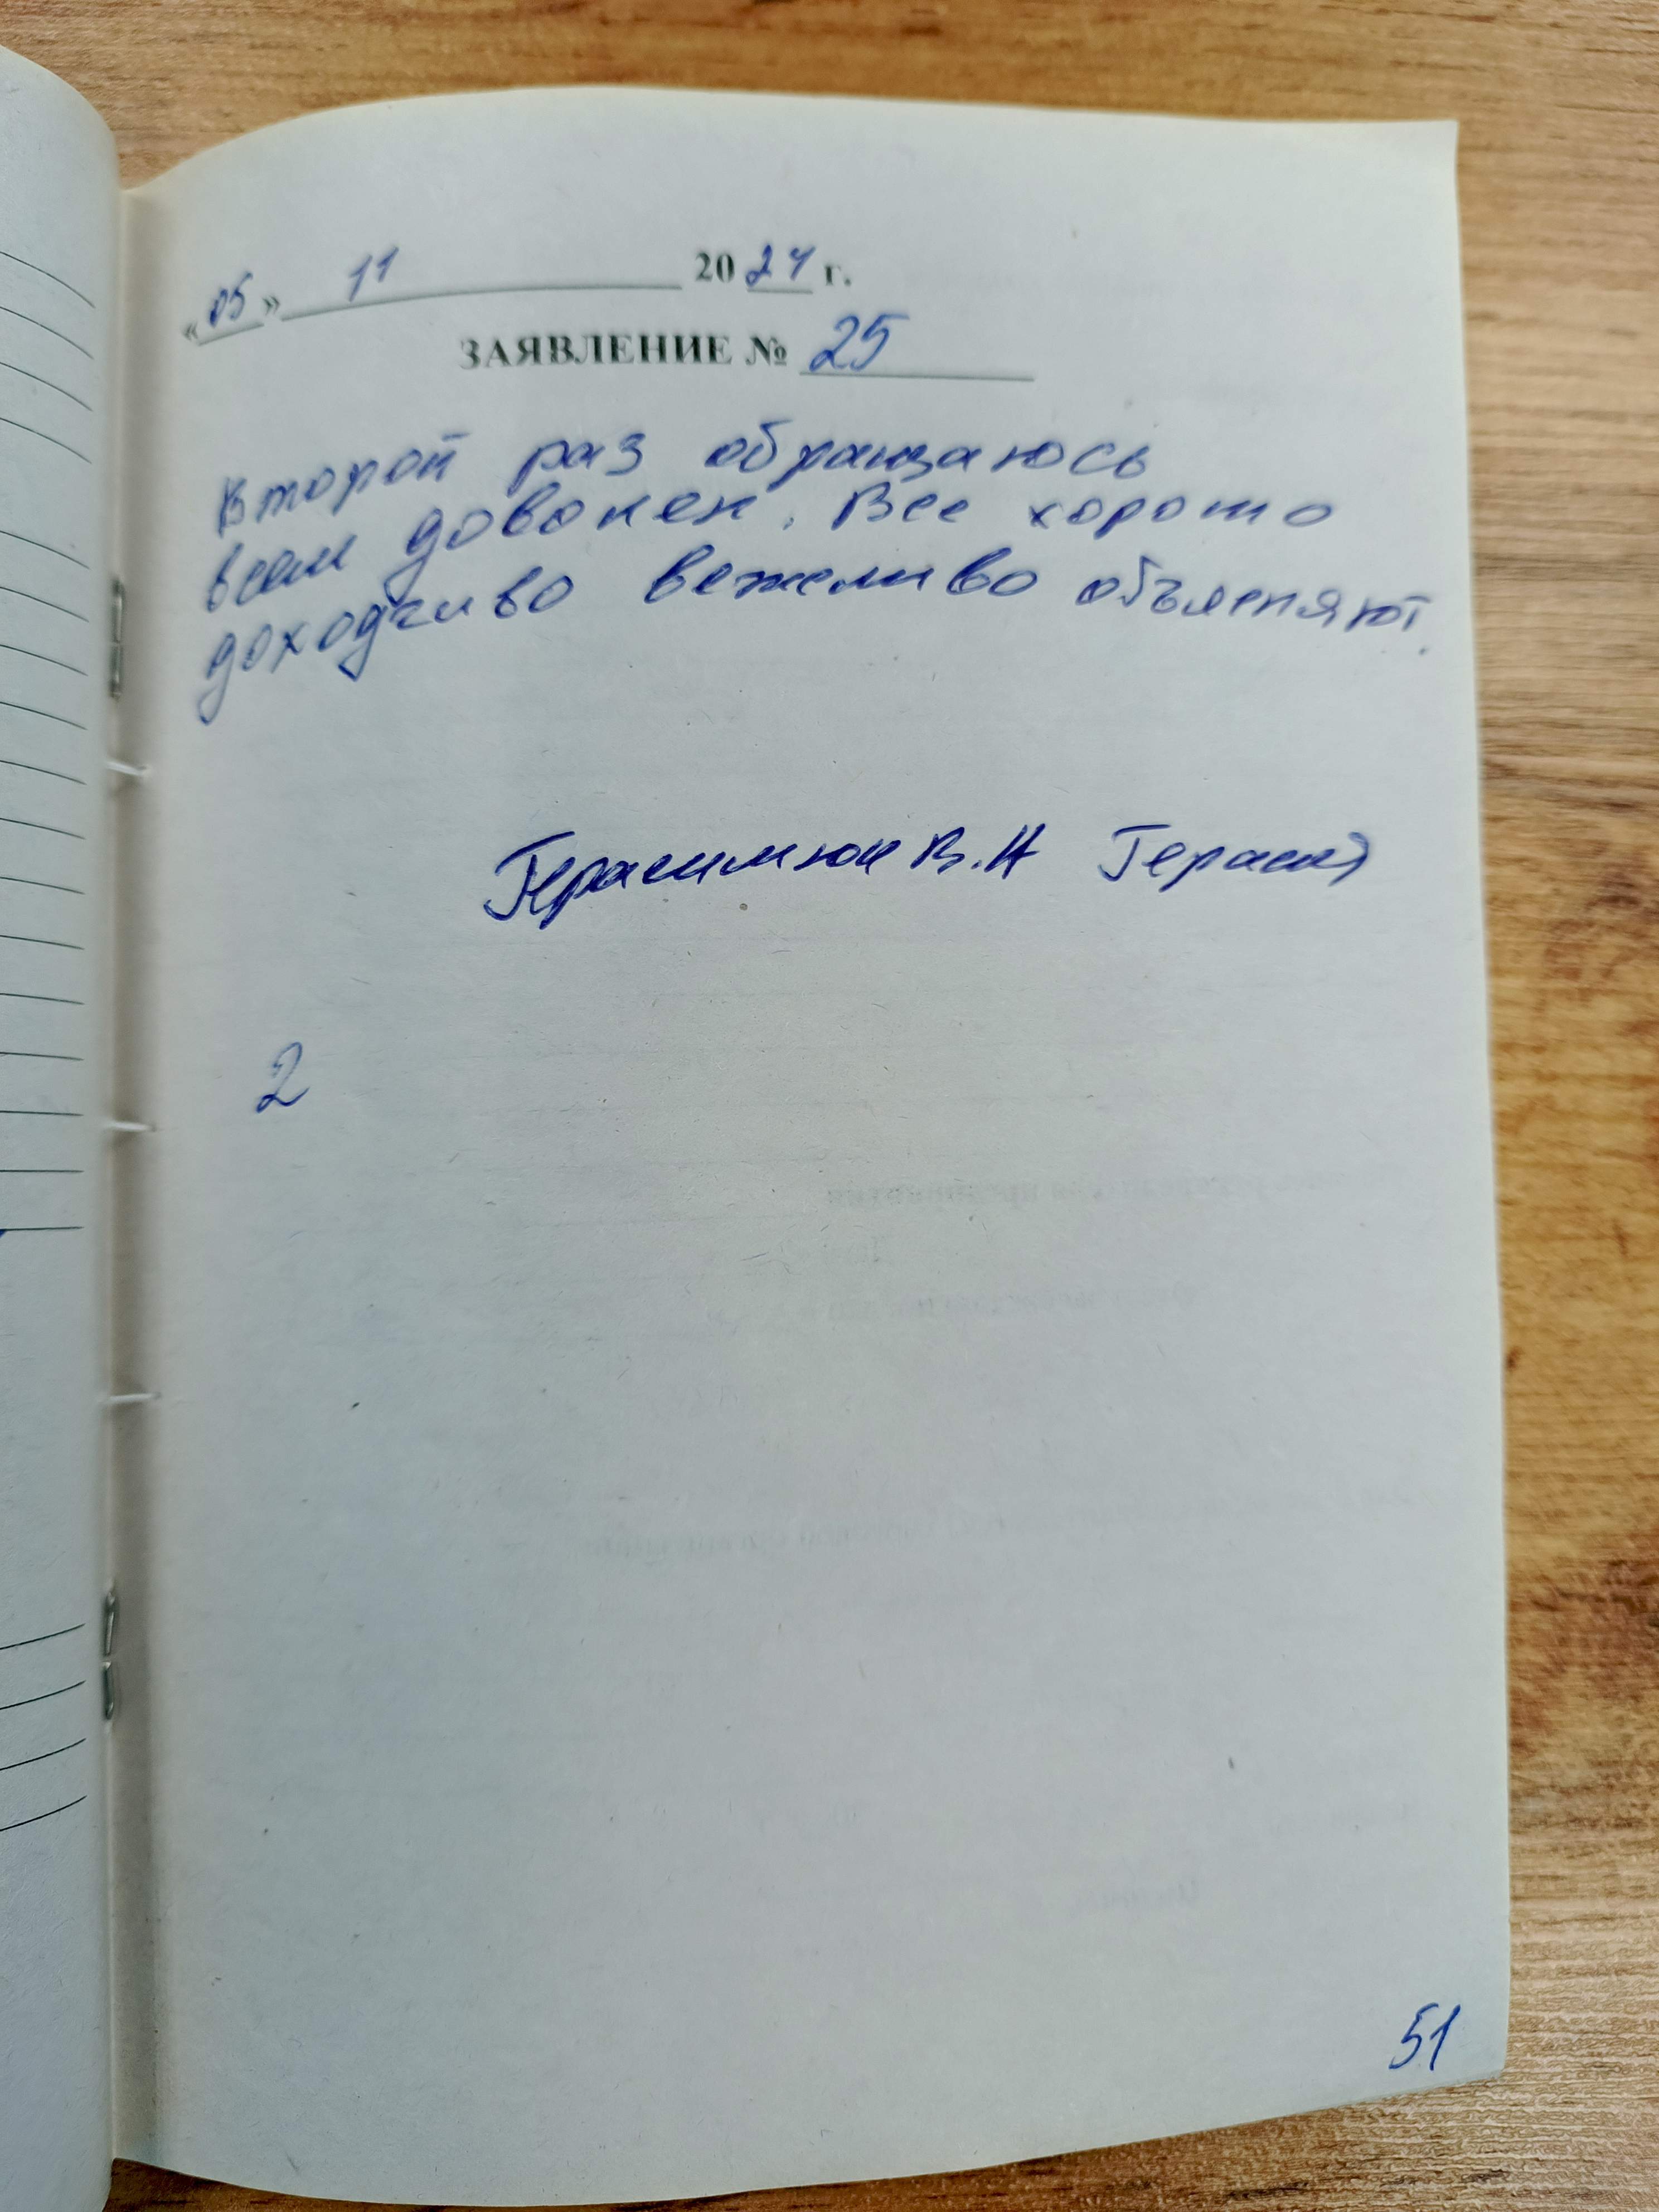 «05» 11 2024 г.
ЗАЯВЛЕНИЕ № 25
Второй раз обращаюсь
всем доволен. Все хорошо
доходчиво вежливо объясняют.
Герасимюк В.Н Герасим
2
51